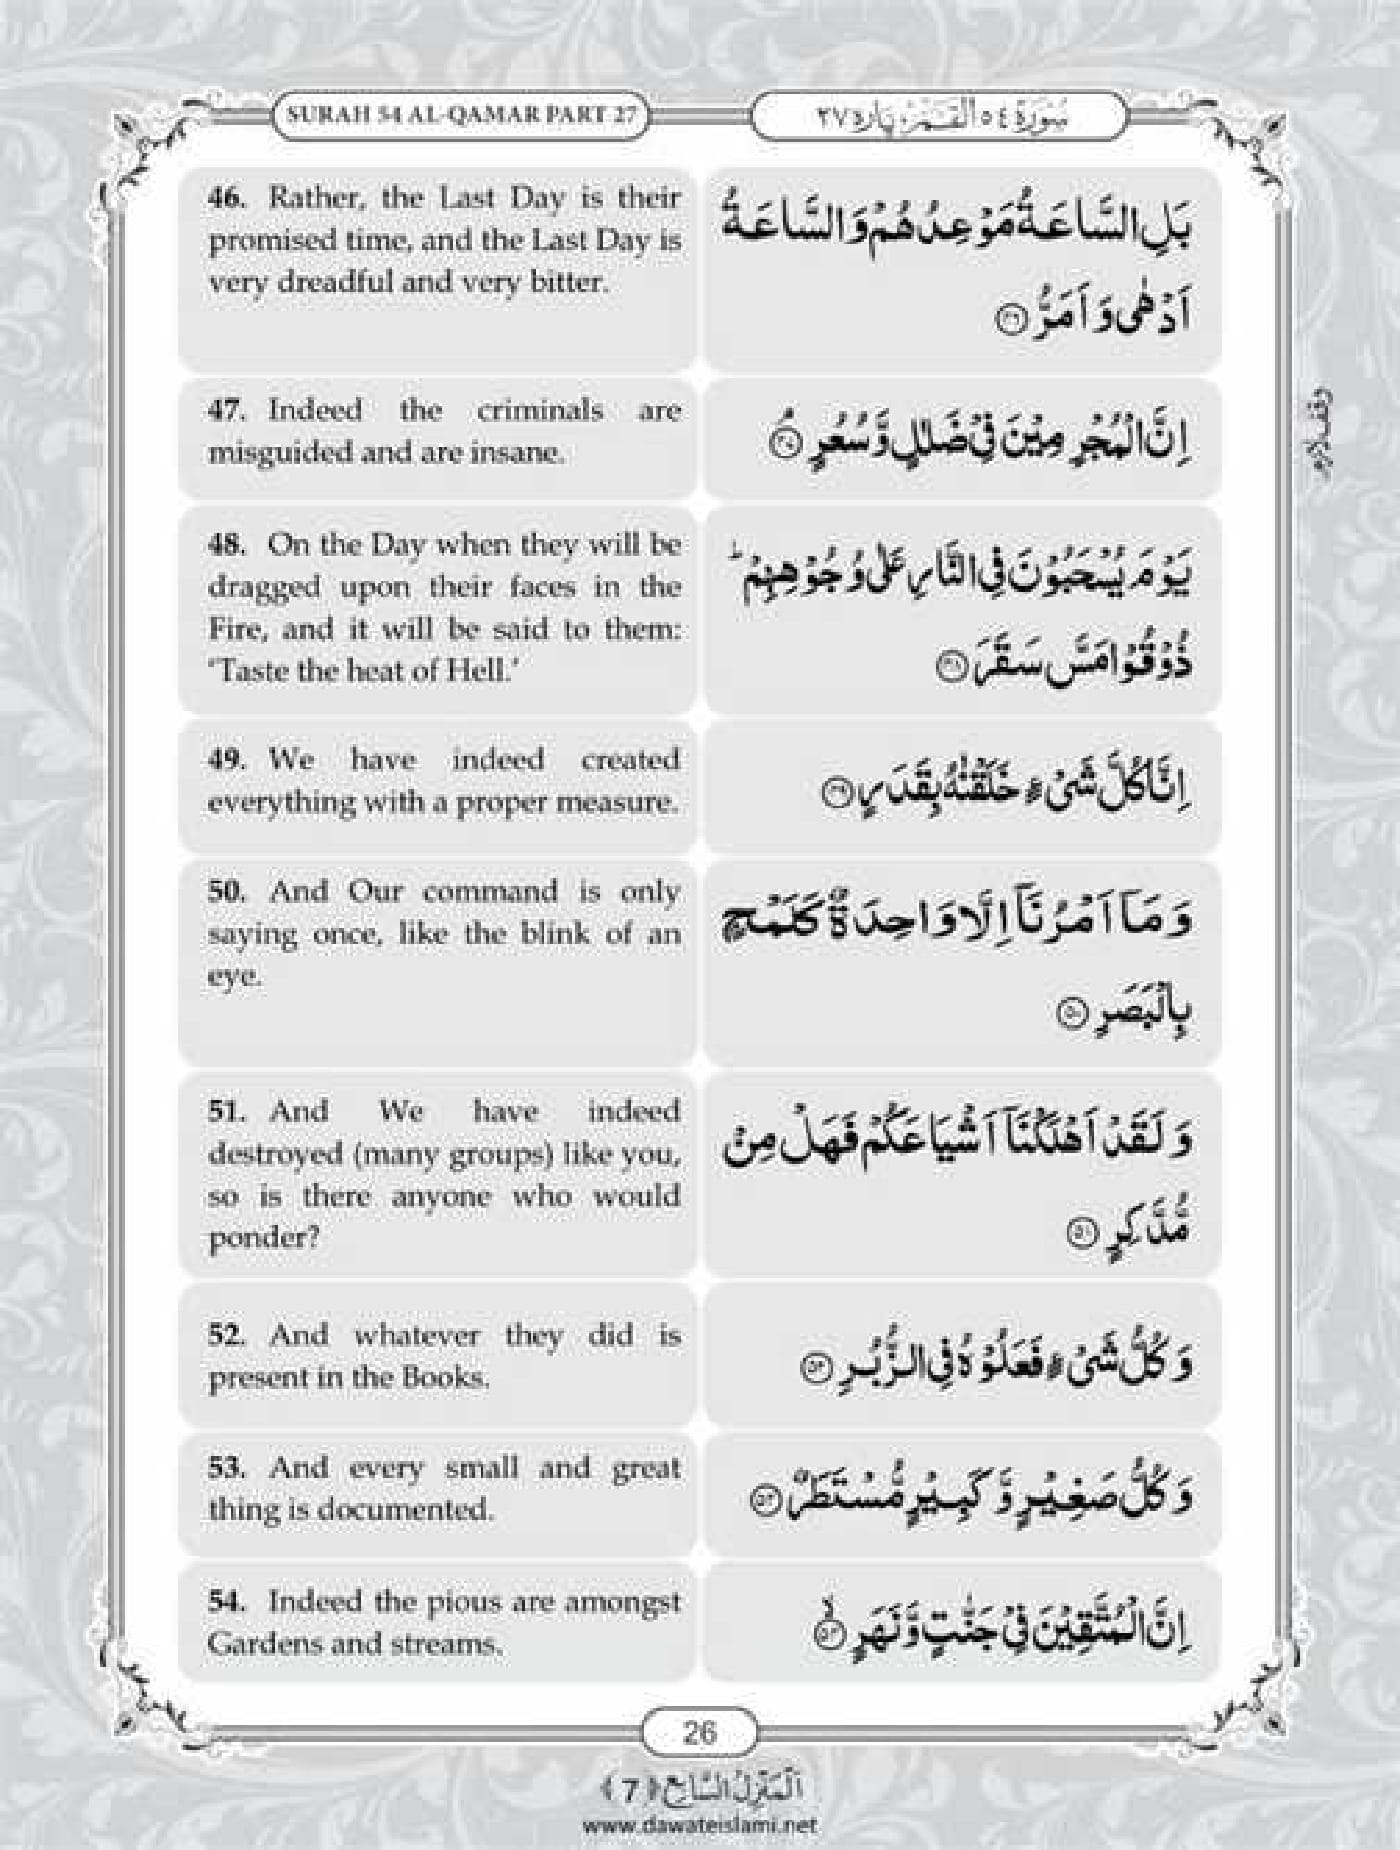 SURAH 54 AL-QAMAR PART 27
سُوْرَةُ ٥٤ اَلْقَمَر، پارہ ٢٧
46. Rather, the Last Day is their
promised time, and the Last Day is
very dreadful and very bitter.
بَلِ السَّاعَةُ مَوْعِدُهُمْ وَ السَّاعَةُ
اَدْهٰى وَ اَمَرُّ ﴿٤٦﴾
47. Indeed the criminals are
misguided and are insane.
اِنَّ الْمُجْرِمِيْنَ فِيْ ضَلٰلٍ وَّ سُعُرٍ ۘ﴿٤٧﴾
وقف لازم
48. On the Day when they will be
dragged upon their faces in the
Fire, and it will be said to them:
‘Taste the heat of Hell.’
يَوْمَ يُسْحَبُوْنَ فِي النَّارِ عَلٰى وُجُوْهِهِمْ ؕ
ذُوْقُوْا مَسَّ سَقَرَ ﴿٤٨﴾
49. We have indeed created
everything with a proper measure.
اِنَّا كُلَّ شَيْءٍ خَلَقْنٰهُ بِقَدَرٍ ﴿٤٩﴾
50. And Our command is only
saying once, like the blink of an
eye.
وَ مَاۤ اَمْرُنَاۤ اِلَّا وَاحِدَةٌ كَلَمْحٍۭ
بِالْبَصَرِ ﴿٥٠﴾
51. And We have indeed
destroyed (many groups) like you,
so is there anyone who would
ponder?
وَ لَقَدْ اَهْلَكْنَاۤ اَشْيَاعَكُمْ فَهَلْ مِنْ
مُّدَّكِرٍ ﴿٥١﴾
52. And whatever they did is
present in the Books.
وَ كُلُّ شَيْءٍ فَعَلُوْهُ فِي الزُّبُرِ ﴿٥٢﴾
53. And every small and great
thing is documented.
وَ كُلُّ صَغِيْرٍ وَّ كَبِيْرٍ مُّسْتَطَرٌ ﴿٥٣﴾
54. Indeed the pious are amongst
Gardens and streams.
اِنَّ الْمُتَّقِيْنَ فِيْ جَنّٰتٍ وَّ نَهَرٍ ۙ﴿٥٤﴾
26
اَلْمَنْزِلُ السَّابِع ﴿7﴾
www.dawateislami.net